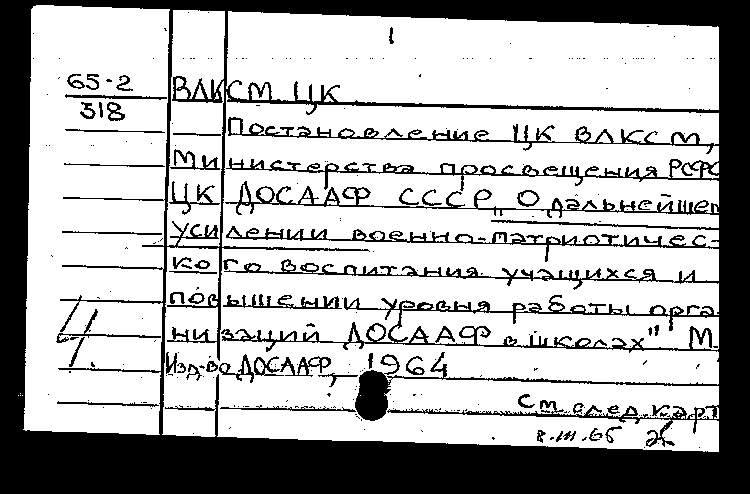 1
65-2
318
ВЛКСМ ЦК
Постановление ЦК ВЛКСМ,
Министерства просвещения РСФС
ЦК ДОСААФ СССР „О дальнейшем
усилении военно-патриотичес-
кого воспитания учащихся и
повышении уровня работы орга
низаций ДОСААФ в школах" М
Изд-во ДОСААФ, 1964
4.
См след. карт
8.III.65